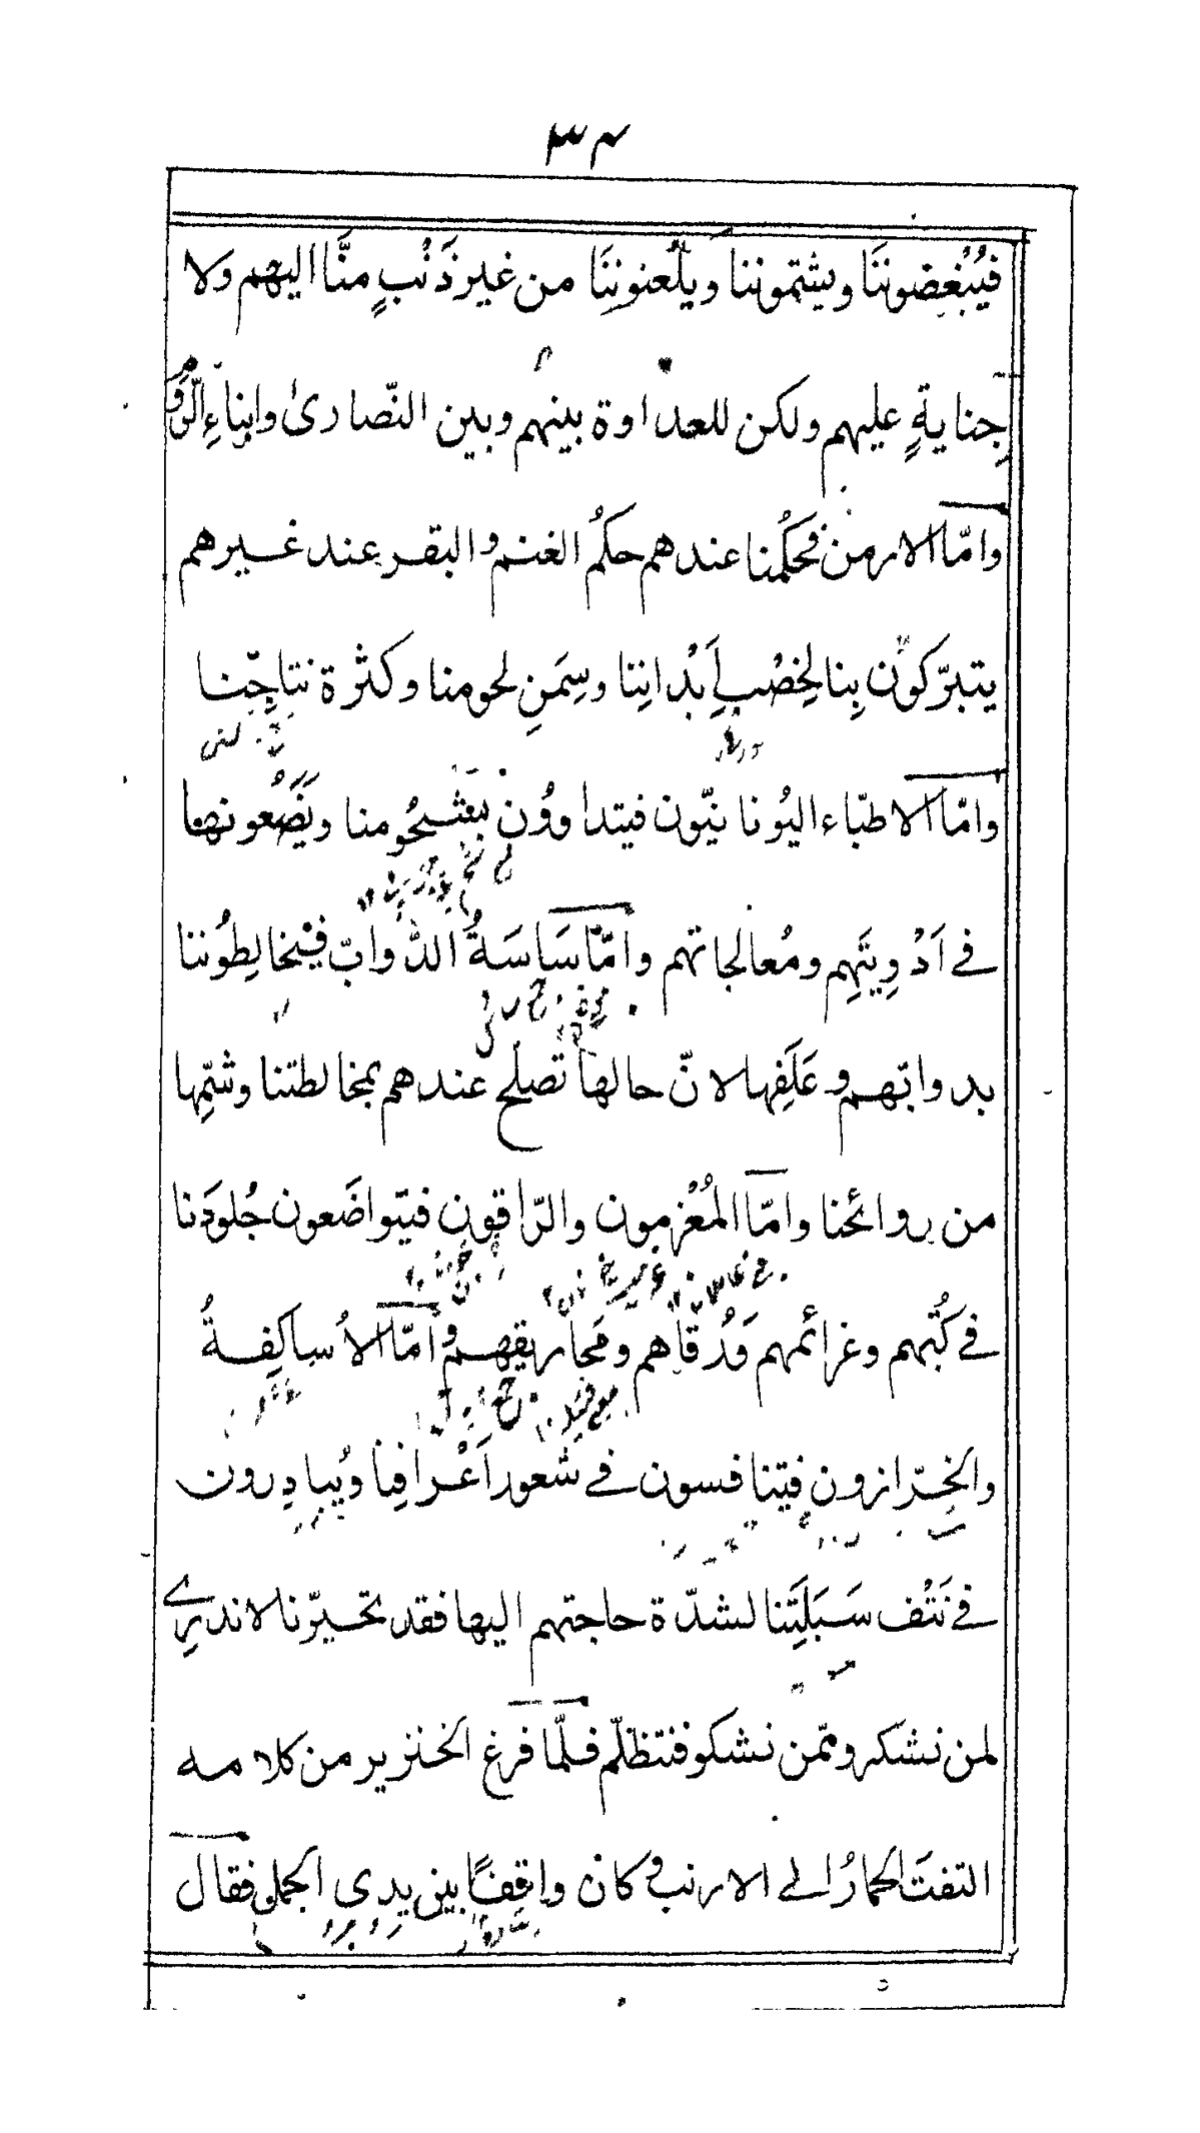 ٣٤
فيُبْغِضوننَا ويشتموننا ويلْعنوننَا من غير ذَنْبٍ منَّا اليهم ولا
جِنايةٍ عليهم ولكن للعداوة بينهم وبين النّصارىٰ وابناءِ الرّوم
وامّا الارمن فحكمُنا عندهم حكمُ الغنم والبقر عند غيرهم
يتبرّكون بِنا لِخِصْبِ اَبْدانِنا وسِمَنِ لحومنا وكثرة نتاجِنا
وامّا الاطبّاء اليُونانيّون فيتداوُون بشُحُومنا ويَضَعونها
في اَدْوِيَتِهِم ومُعالجاتهم وامّا سَاسَةُ الدّوابّ فيُخالِطُوننا
بدوابّهم وعَلَفِها لانّ حالها تصلح عندهم بمخالطتنا وشَمِّها
من روائحنا وامّا المُعْزِمون والرّاقون فيتواضَعون جُلودَنا
في كُتُبهم وعزائمهم ورُقاهم ومَخاريقهم وامّا الأساكِفةُ
والخرّازون فيتنافسون في شعور اَعْرافِنا ويُبادِرون
في نَتْف سَبَلَتِنا لشدّة حاجتهم اليها فقد تحيّرنا لا ندرِي
لمن نشكر وممّن نشكو فنتظلّم فلمّا فرغ الخنزير من كلامه
التفتَ الحمارُ الى الارنب وكان واقفًا بين يدي الجمل فقال